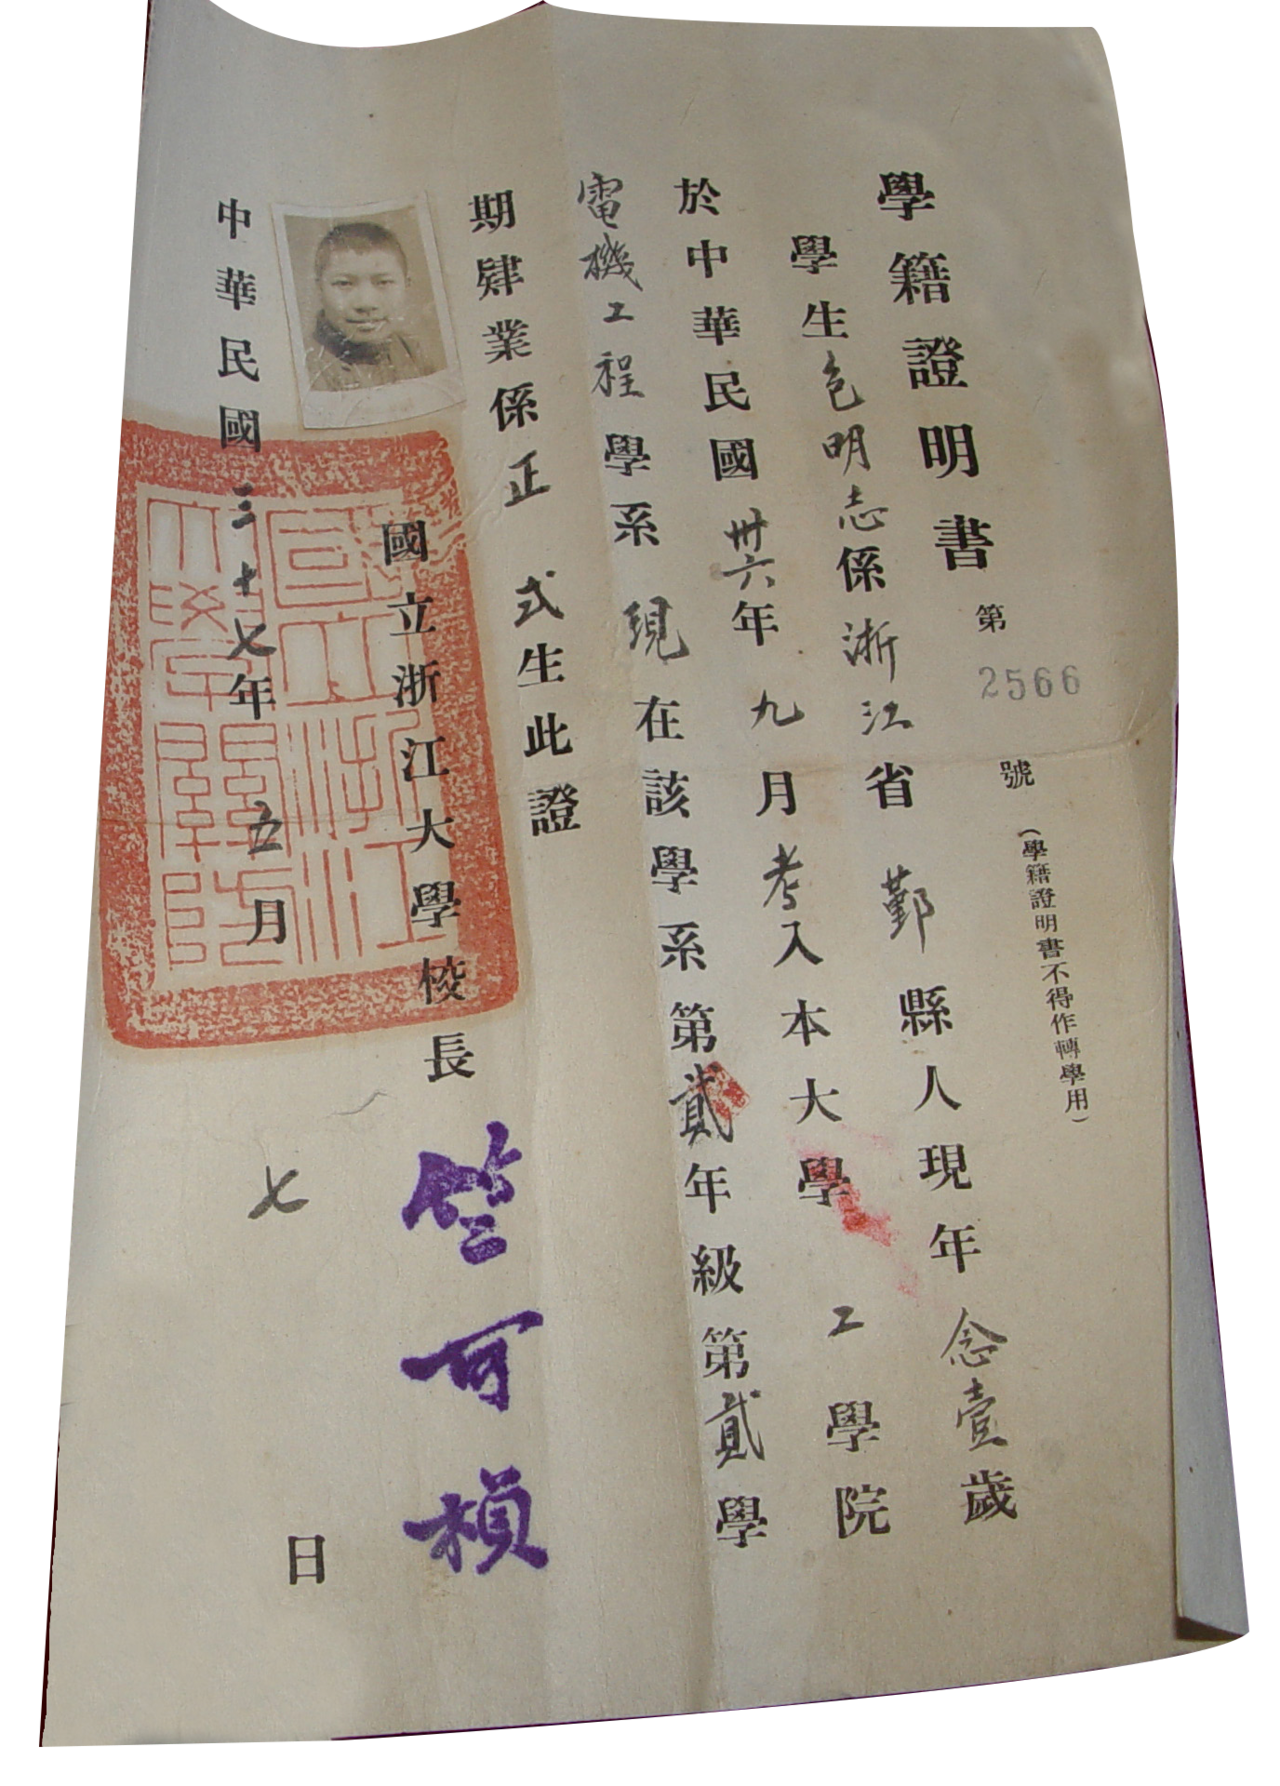 學籍證明書 第2566號（學籍證明書不得作轉學用）
學生包明志係浙江省鄞縣人現年念壹歲
於中華民國卅六年九月考入本大學工學院
電機工程學系現在該學系第貳年級第貳學
期肄業係正式生此證
國立浙江大學校長竺可楨
中華民國三十七年五月七日